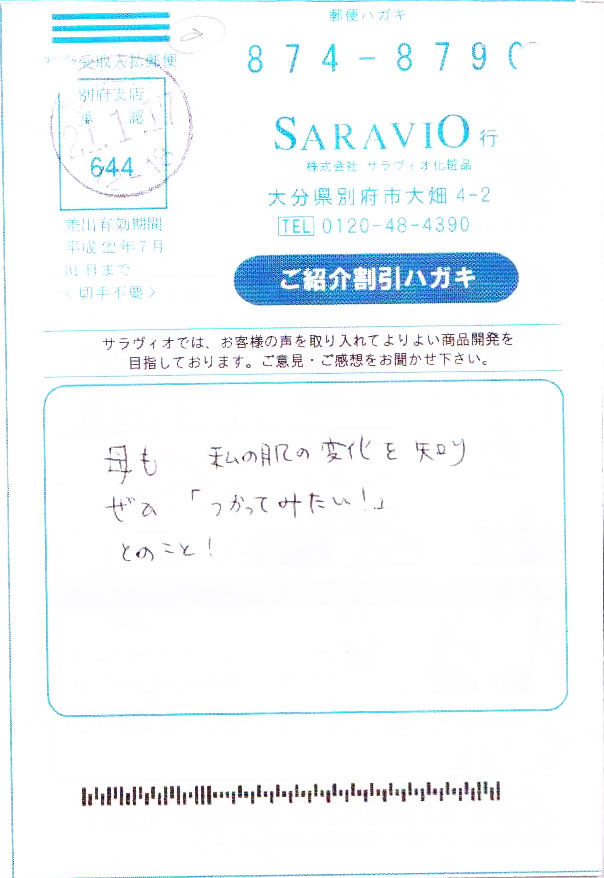 郵便ハガキ
874-8790
料金受取人払郵便
別府支店
承認
644
差出有効期間
平成22年7月
31日まで
<切手不要>
SARAVIO行
株式会社 サラヴィオ化粧品
大分県別府市大畑4-2
TEL 0120-48-4390
ご紹介割引ハガキ
サラヴィオでは、お客様の声を取り入れてよりよい商品開発を
目指しております。ご意見・ご感想をお聞かせ下さい。
母も 私の肌の変化を知り
ぜひ「つかってみたい!」
とのこと!